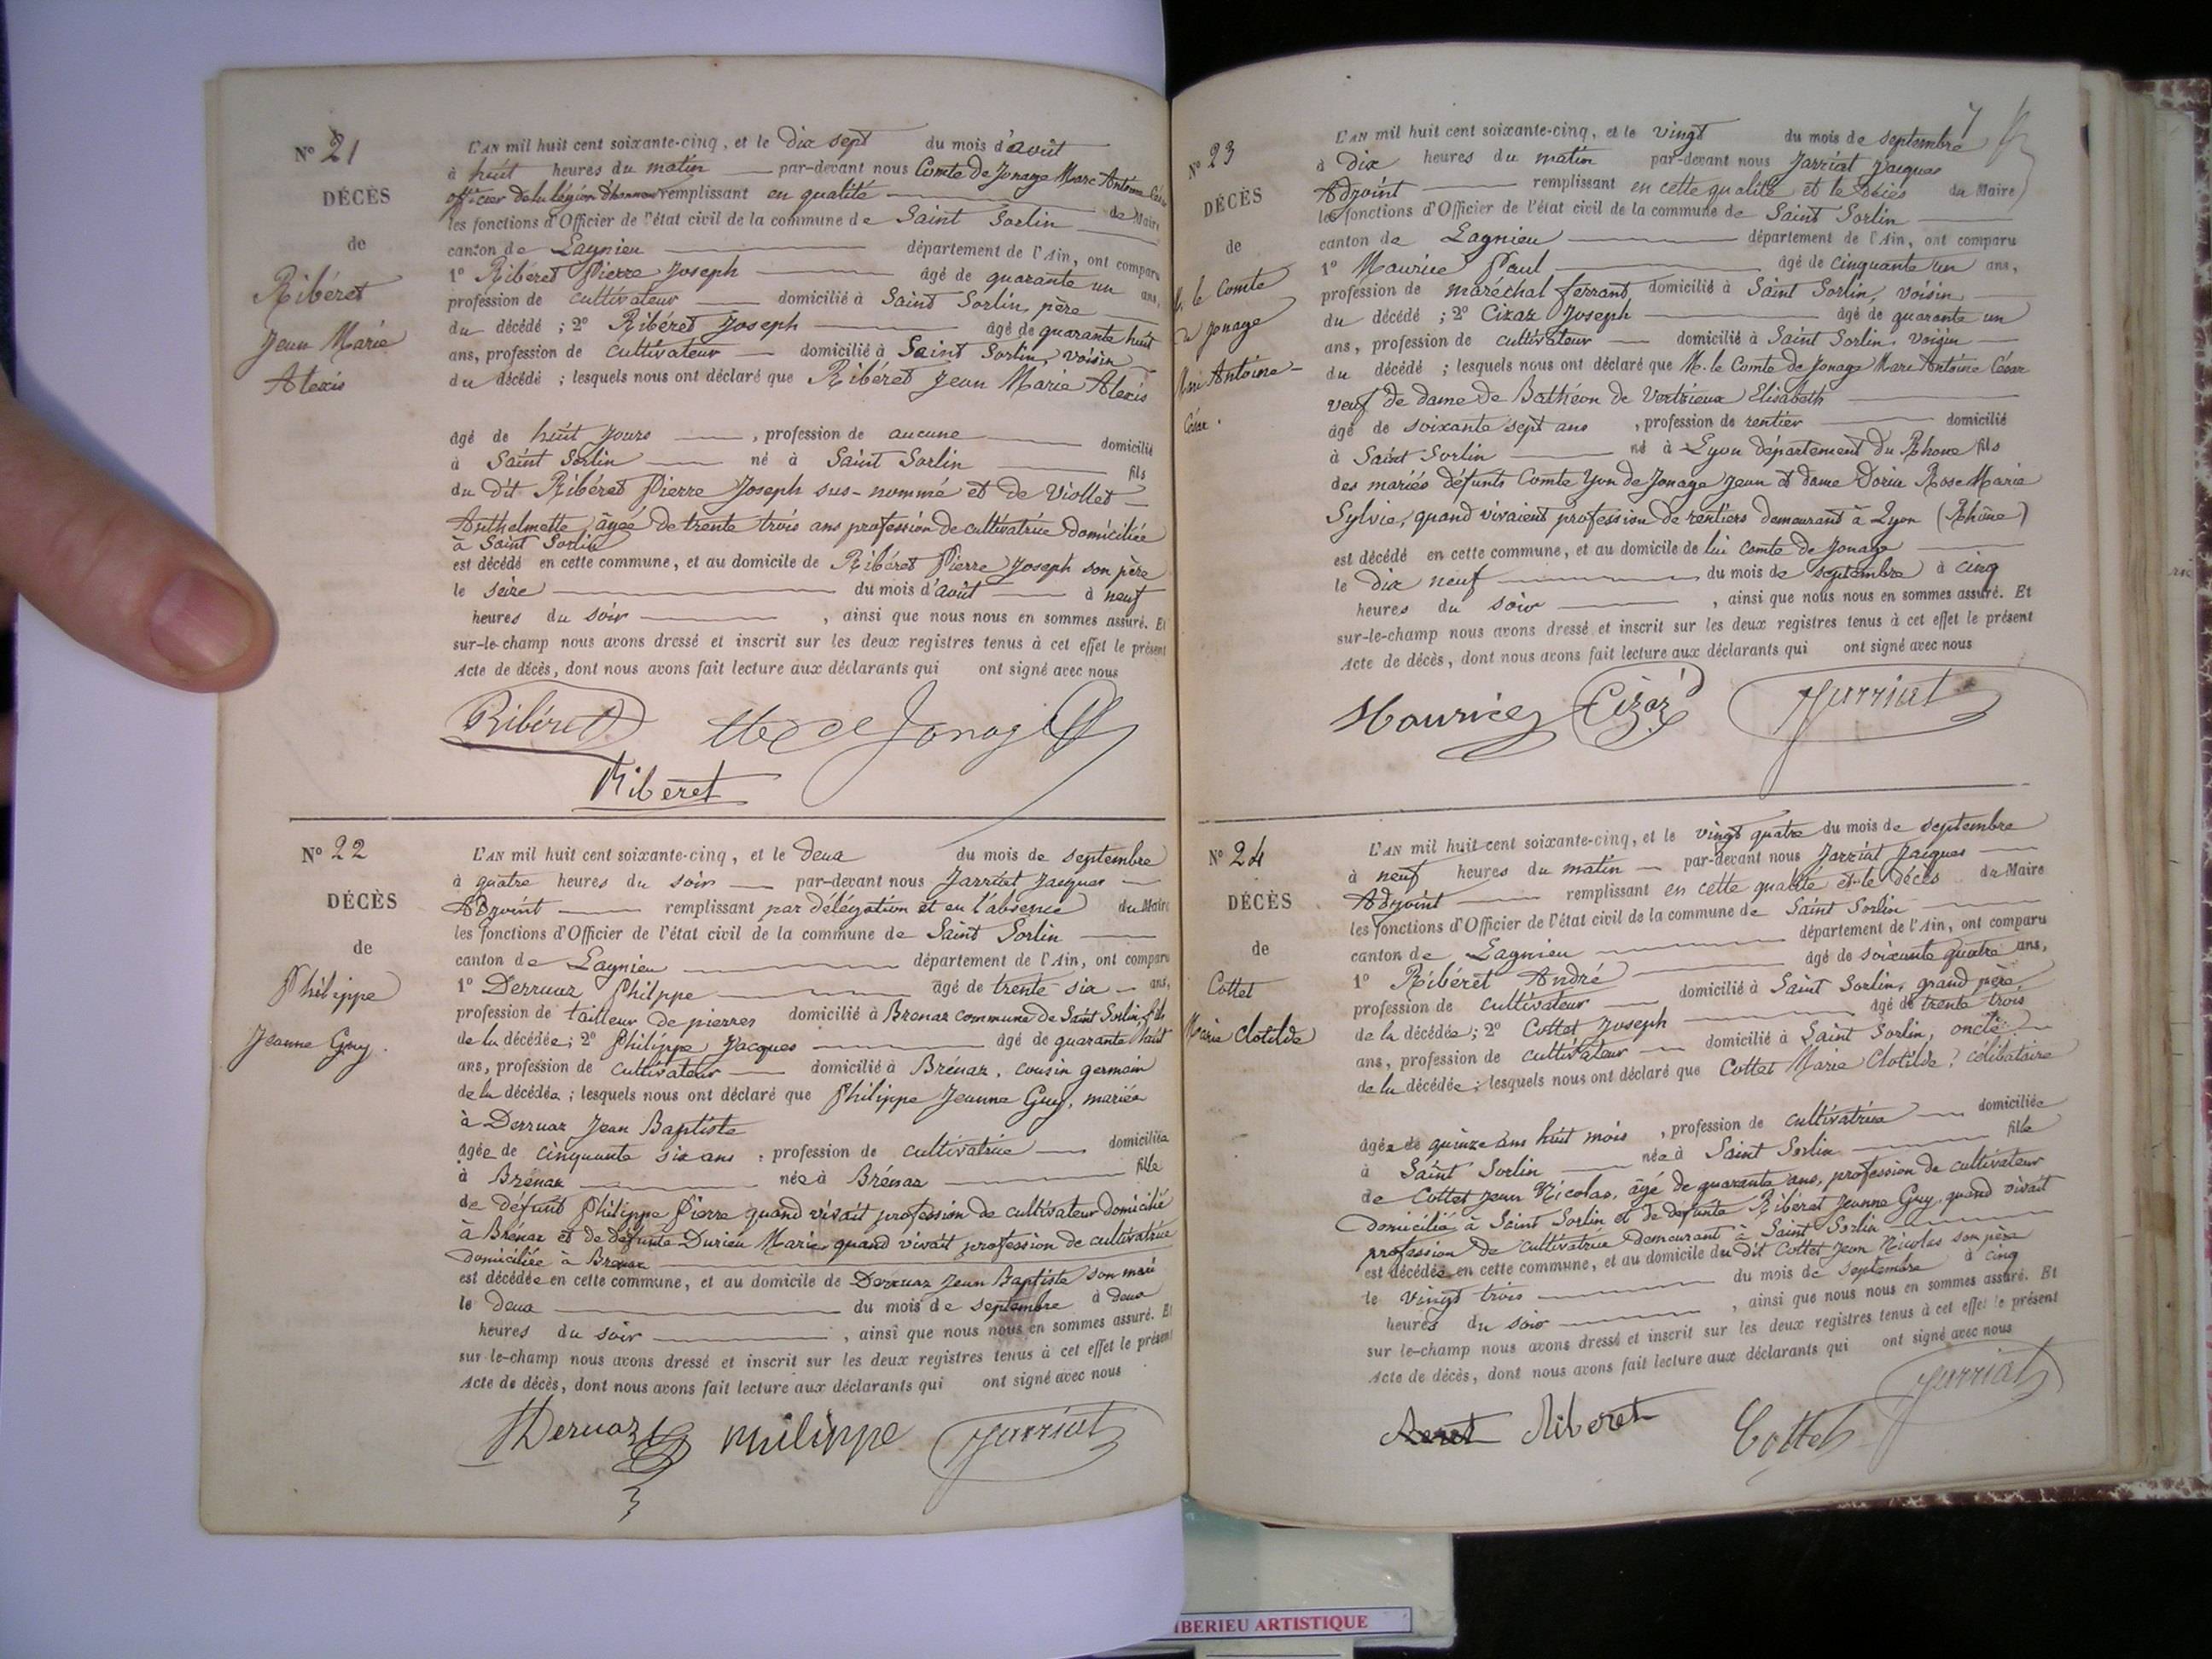 N° 21
DÉCÈS
de
Ribéret
Jean Marie
Alexis
L'AN mil huit cent soixante-cinq, et le dix sept du mois d'août
à huit heures du matin par-devant nous Comte de Jonage Marc Antoine César
officier de la légion d'honneur remplissant en qualité de Maire
les fonctions d'Officier de l'état civil de la commune de Saint Sorlin
canton de Lagnieu département de l'Ain, ont comparu
1° Ribéret Pierre Joseph âgé de quarante un ans,
profession de cultivateur domicilié à Saint Sorlin, père
du décédé ; 2° Ribéret Joseph âgé de quarante huit
ans, profession de cultivateur domicilié à Saint Sorlin, voisin
du décédé ; lesquels nous ont déclaré que Ribéret Jean Marie Alexis
âgé de huit jours , profession de aucune domicilié
à Saint Sorlin né à Saint Sorlin fils
du dit Ribéret Pierre Joseph sus-nommé et de Viollet
Anthelmette, âgée de trente trois ans profession de cultivatrice domiciliée
à Saint Sorlin
est décédé en cette commune, et au domicile de Ribéret Pierre Joseph son père
le seize du mois d'août à neuf
heures du soir , ainsi que nous nous en sommes assuré. Et
sur-le-champ nous avons dressé et inscrit sur les deux registres tenus à cet effet le présent
Acte de décès, dont nous avons fait lecture aux déclarants qui ont signé avec nous
Ribéret de Jonage
Riberet
N° 22
DÉCÈS
de
Philippe
Jeanne Guy.
L'AN mil huit cent soixante-cinq, et le deux du mois de septembre
à quatre heures du soir par-devant nous Jarriat Jacques
Adjoint remplissant par délégation et en l'absence du Maire
les fonctions d'Officier de l'état civil de la commune de Saint Sorlin
canton de Lagnieu département de l'Ain, ont comparu
1° Derruaz Philppe âgé de trente six ans,
profession de tailleur de pierres domicilié à Brenaz commune de Saint Sorlin, fils
de la décédée ; 2° Philippe Jacques âgé de quarante huit
ans, profession de cultivateur domicilié à Brénaz, cousin germain
de la décédée ; lesquels nous ont déclaré que Philippe Jeanne Guy, mariée
à Derruaz Jean Baptiste
âgée de cinquante six ans , profession de cultivatrice domiciliée
à Brénaz née à Brénaz fille
de défunt Philippe Pierre quand vivait profession de cultivateur domicilié
à Brénaz et de défunte Durieu Marie quand vivait profession de cultivatrice
domiciliée à Brenaz
est décédée en cette commune, et au domicile de Derruaz Jean Baptiste son mari
le deux du mois de septembre à deux
heures du soir , ainsi que nous nous en sommes assuré. Et
sur-le-champ nous avons dressé et inscrit sur les deux registres tenus à cet effet le présent
Acte de décès, dont nous avons fait lecture aux déclarants qui ont signé avec nous
Deruaz Philippe Jarriat
7
N° 23
DÉCÈS
de
M. le Comte
de Jonage
Marc Antoine-
César.
L'AN mil huit cent soixante-cinq, et le vingt du mois de septembre
à dix heures du matin par-devant nous Jarriat Jacques
Adjoint remplissant en cette qualité et le décès du Maire
les fonctions d'Officier de l'état civil de la commune de Saint Sorlin
canton de Lagnieu département de l'Ain, ont comparu
1° Maurice Paul âgé de cinquante un ans,
profession de maréchal ferrant, domicilié à Saint Sorlin, voisin
du décédé ; 2° Cizaz Joseph âgé de quarante un
ans, profession de cultivateur domicilié à Saint Sorlin, voisin
du décédé ; lesquels nous ont déclaré que M. le Comte de Jonage Marc Antoine César
veuf de dame de Bathéon de Vertrieux Elisabeth
âgé de soixante sept ans , profession de rentier domicilié
à Saint Sorlin né à Lyon département du Rhone fils
des mariés défunts Comte Yon de Jonage Jean et dame Doria Rose Marie
Sylvie, quand vivaient profession de rentiers demeurant à Lyon (Rhône)
est décédé en cette commune, et au domicile de lui Comte de Jonage
le dix neuf du mois de septembre à cinq
heures du soir , ainsi que nous nous en sommes assuré. Et
sur-le-champ nous avons dressé et inscrit sur les deux registres tenus à cet effet le présent
Acte de décès, dont nous avons fait lecture aux déclarants qui ont signé avec nous
Maurice Cizaz Jarriat
N° 24
DÉCÈS
de
Cottet
Marie Clotilde
L'AN mil huit cent soixante-cinq, et le vingt quatre du mois de septembre
à neuf heures du matin par-devant nous Jarriat Jacques
Adjoint remplissant en cette qualité et le décès du Maire
les fonctions d'Officier de l'état civil de la commune de Saint Sorlin
canton de Lagnieu département de l'Ain, ont comparu
1° Ribéret André âgé de soixante quatre ans,
profession de cultivateur domicilié à Saint Sorlin, grand père,
de la décédée ; 2° Cottet Joseph âgé de trente trois
ans, profession de cultivateur domicilié à Saint Sorlin, oncle
de la décédée ; lesquels nous ont déclaré que Cottet Marie Clotilde, célibataire
âgée de quinze ans huit mois , profession de cultivatrice domiciliée
à Saint Sorlin née à Saint Sorlin fille
de Cottet Jean Nicolas, âgé de quarante ans, profession de cultivateur
domicilié à Saint Sorlin et de défunte Ribéret Jeanne Guy, quand vivait
profession de cultivatrice demeurant à Saint Sorlin
est décédée en cette commune, et au domicile du dit Cottet Jean Nicolas son père
le vingt trois du mois de septembre à cinq
heures du soir , ainsi que nous nous en sommes assuré. Et
sur le-champ nous avons dressé et inscrit sur les deux registres tenus à cet effet le présent
Acte de décès, dont nous avons fait lecture aux déclarants qui ont signé avec nous
Riberet Cottet Jarriat
IBERIEU ARTISTIQUE